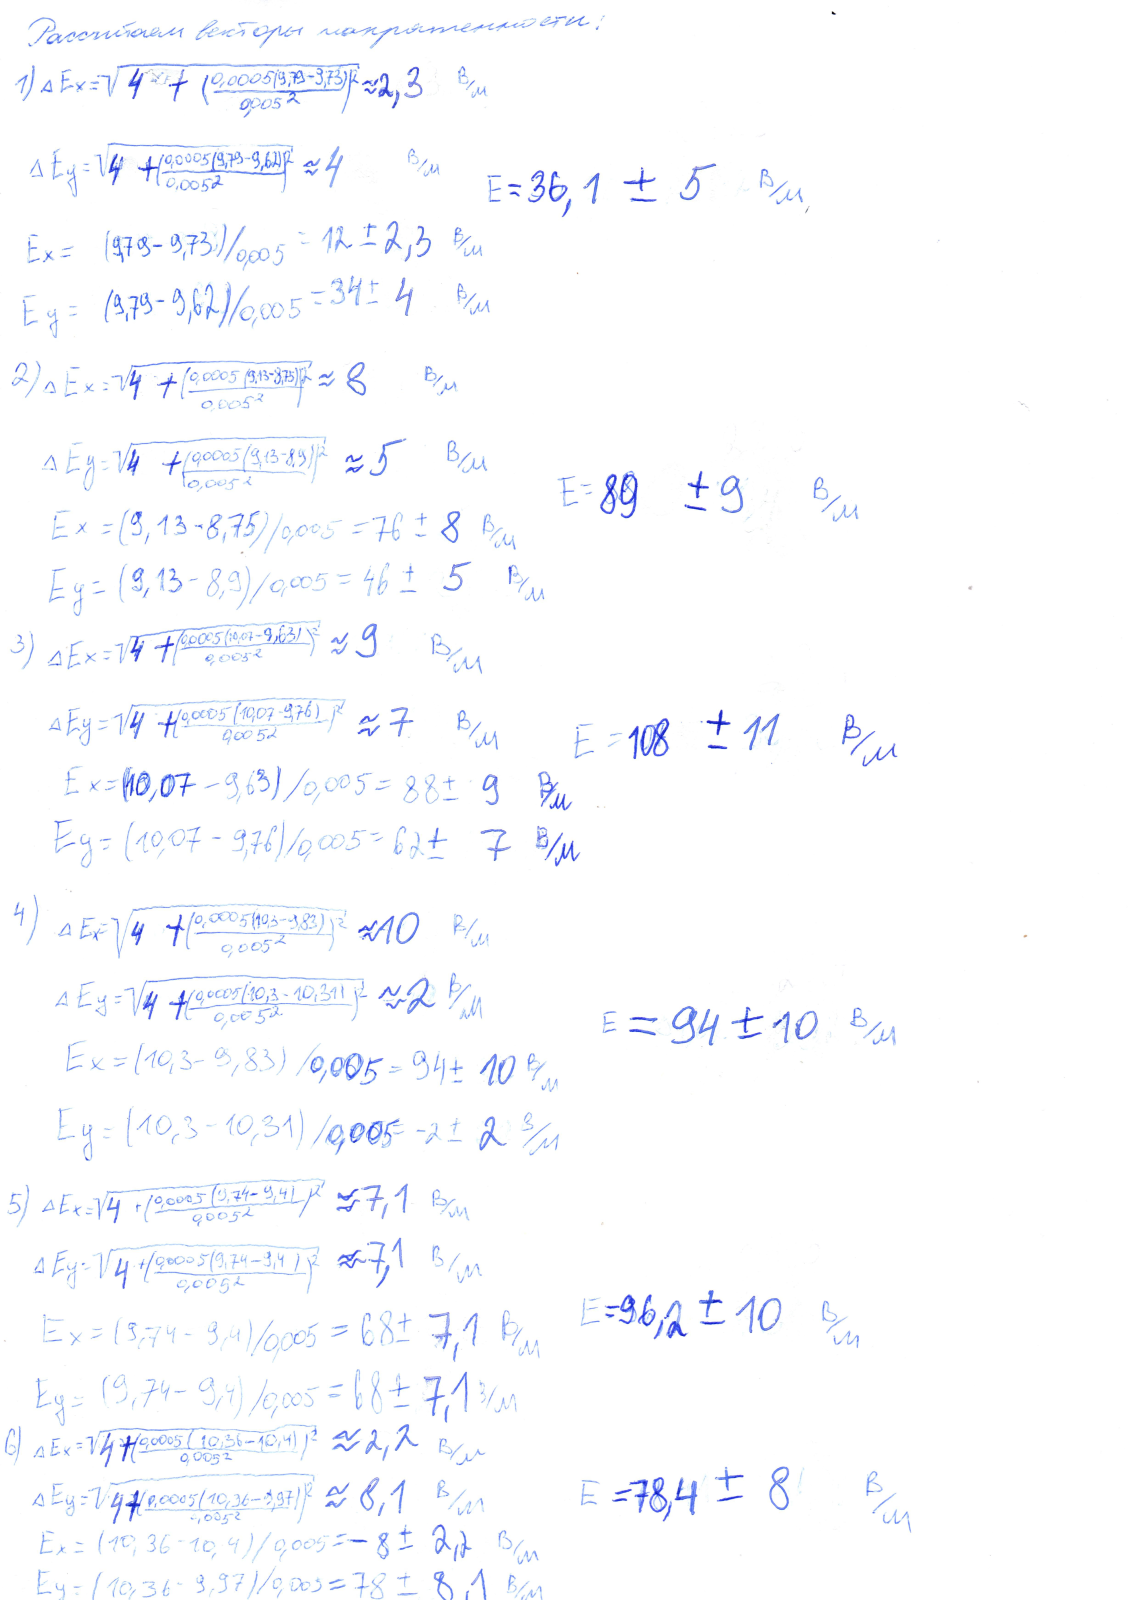 Рассчитаем векторы напряженности:
1) ΔEx=√(4 + (0,0005(9,79-9,73)/0,005²)²) ≈2,3 В/м
ΔEy=√(4 +(0,0005(9,79-9,62)/0,005²)²) ≈4 В/м
E=36,1 ± 5 В/м,
Ex= (9,79-9,73)/0,005 = 12 ± 2,3 В/м
Ey= (9,79-9,62)/0,005 =34± 4 В/м
2) ΔEx=√(4 +(0,0005(9,13-8,75)/0,005²)²) ≈ 8 В/м
ΔEy=√(4 +(0,0005(9,13-8,9)/0,005²)²) ≈5 В/м
E=89 ±9 В/м
Ex=(9,13-8,75)/0,005=76± 8 В/м
Ey=(9,13-8,9)/0,005=46± 5 В/м
3) ΔEx=√(4+(0,0005(10,07-9,63)/0,005²)²) ≈9 В/м
ΔEy=√(4 +(0,0005(10,07-9,76)/0,005²)²) ≈7 В/м
E=108 ±11 В/м
Ex=(10,07-9,63)/0,005=88± 9 В/м
Ey=(10,07-9,76)/0,005=62± 7 В/м
4) ΔEx=√(4 +(0,0005(10,3-9,83)/0,005²)²) ≈10 В/м
ΔEy=√(4 +(0,0005(10,3-10,31)/0,005²)²) ≈2 В/м
E =94±10 В/м
Ex=(10,3-9,83)/0,005=94± 10 В/м
Ey=(10,3-10,31)/0,005=-2± 2 В/м
5) ΔEx=√(4 +(0,0005(9,74-9,4)/0,005²)²) ≈7,1 В/м
ΔEy=√(4+(0,0005(9,74-9,4)/0,005²)²) ≈7,1 В/м
E=96,2 ±10 В/м
Ex=(9,74-9,4)/0,005=68± 7,1 В/м
Ey=(9,74-9,4)/0,005=68± 7,1 В/м
6) ΔEx=√(4+(0,0005(10,36-10,4)/0,005²)²) ≈2,2 В/м
ΔEy=√(4+(0,0005(10,36-9,97)/0,005²)²) ≈ 8,1 В/м
E =78,4 ± 8 В/м
Ex=(10,36-10,4)/0,005=-8± 2,2 В/м
Ey=(10,36-9,97)/0,005=78± 8,1 В/м